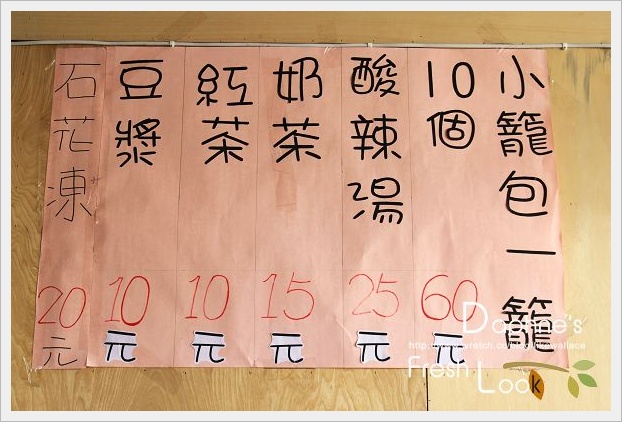 小籠包一籠
10個 60元
酸辣湯 25元
奶茶 15元
紅茶 10元
豆漿 10元
石花凍 20元
Daphne's
Fresh Look